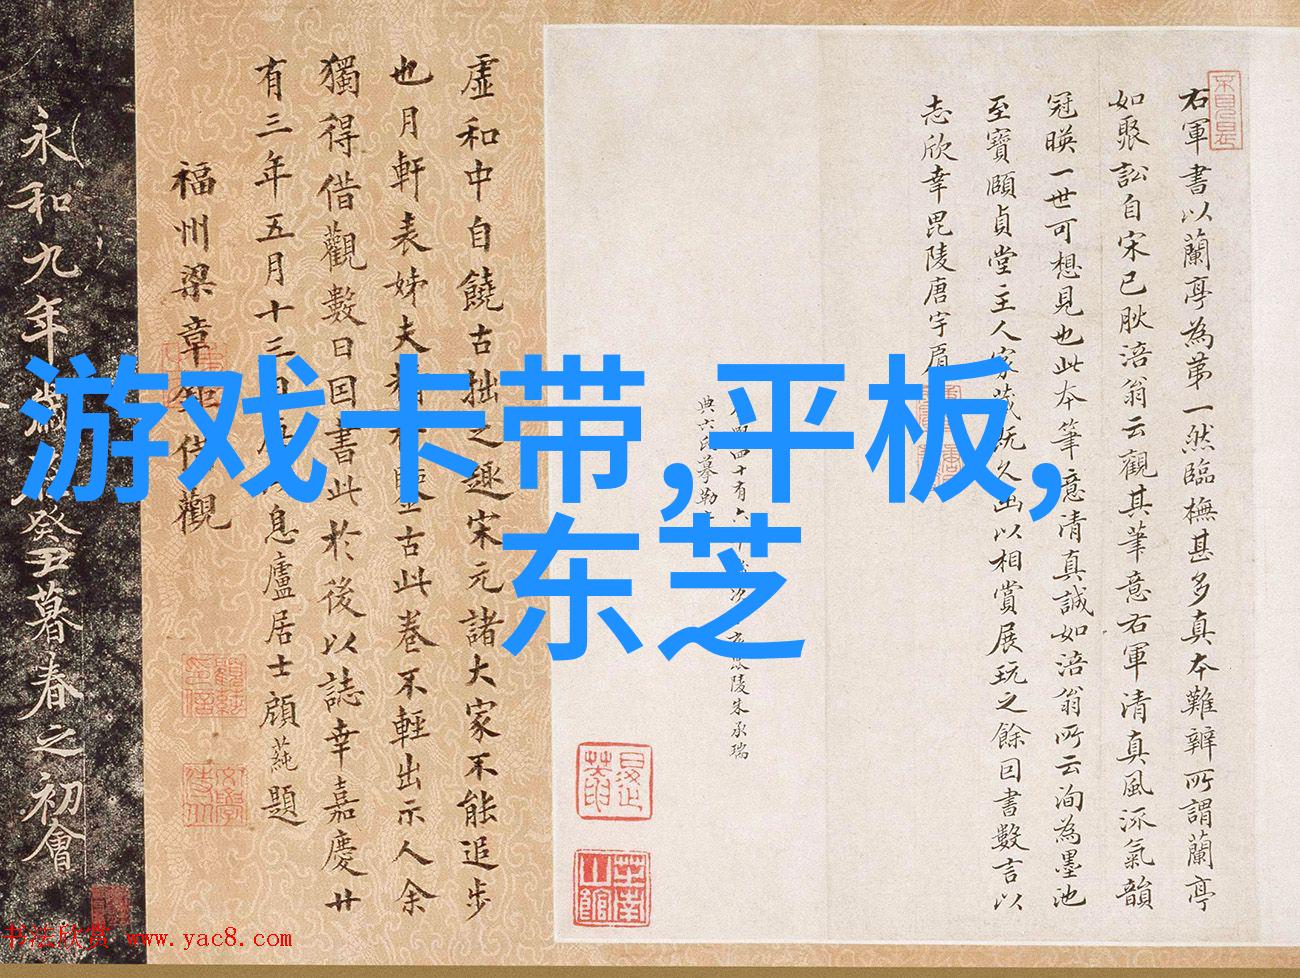 右軍書以蘭亭為第一然臨橅甚多真本難辨所謂蘭亭
如聚訟自宋已肰涪翁云觀其筆意右軍清真風流氣韻
冠暎一世可想見也此本筆意清真誠如涪翁所云洵為墨池
至寶頤貞堂主人家藏既久出以相賞展玩之餘因書數言以
志欣幸毘陵唐宇肩
典六氏摹勒
陵朱承瑞
虛和中自饒古拙之趣宋元諸大家不能追步
也月軒表姊夫
古此卷不輕出示人余
獨得借觀數日因書此於後以誌幸嘉慶廿
有三年五月十三日
息廬居士顧蒓題
福州梁章鉅借觀
永和九年歲在癸丑暮春之初會
游戏卡带,平板,
东芝
书法欣赏 www.yac8.com